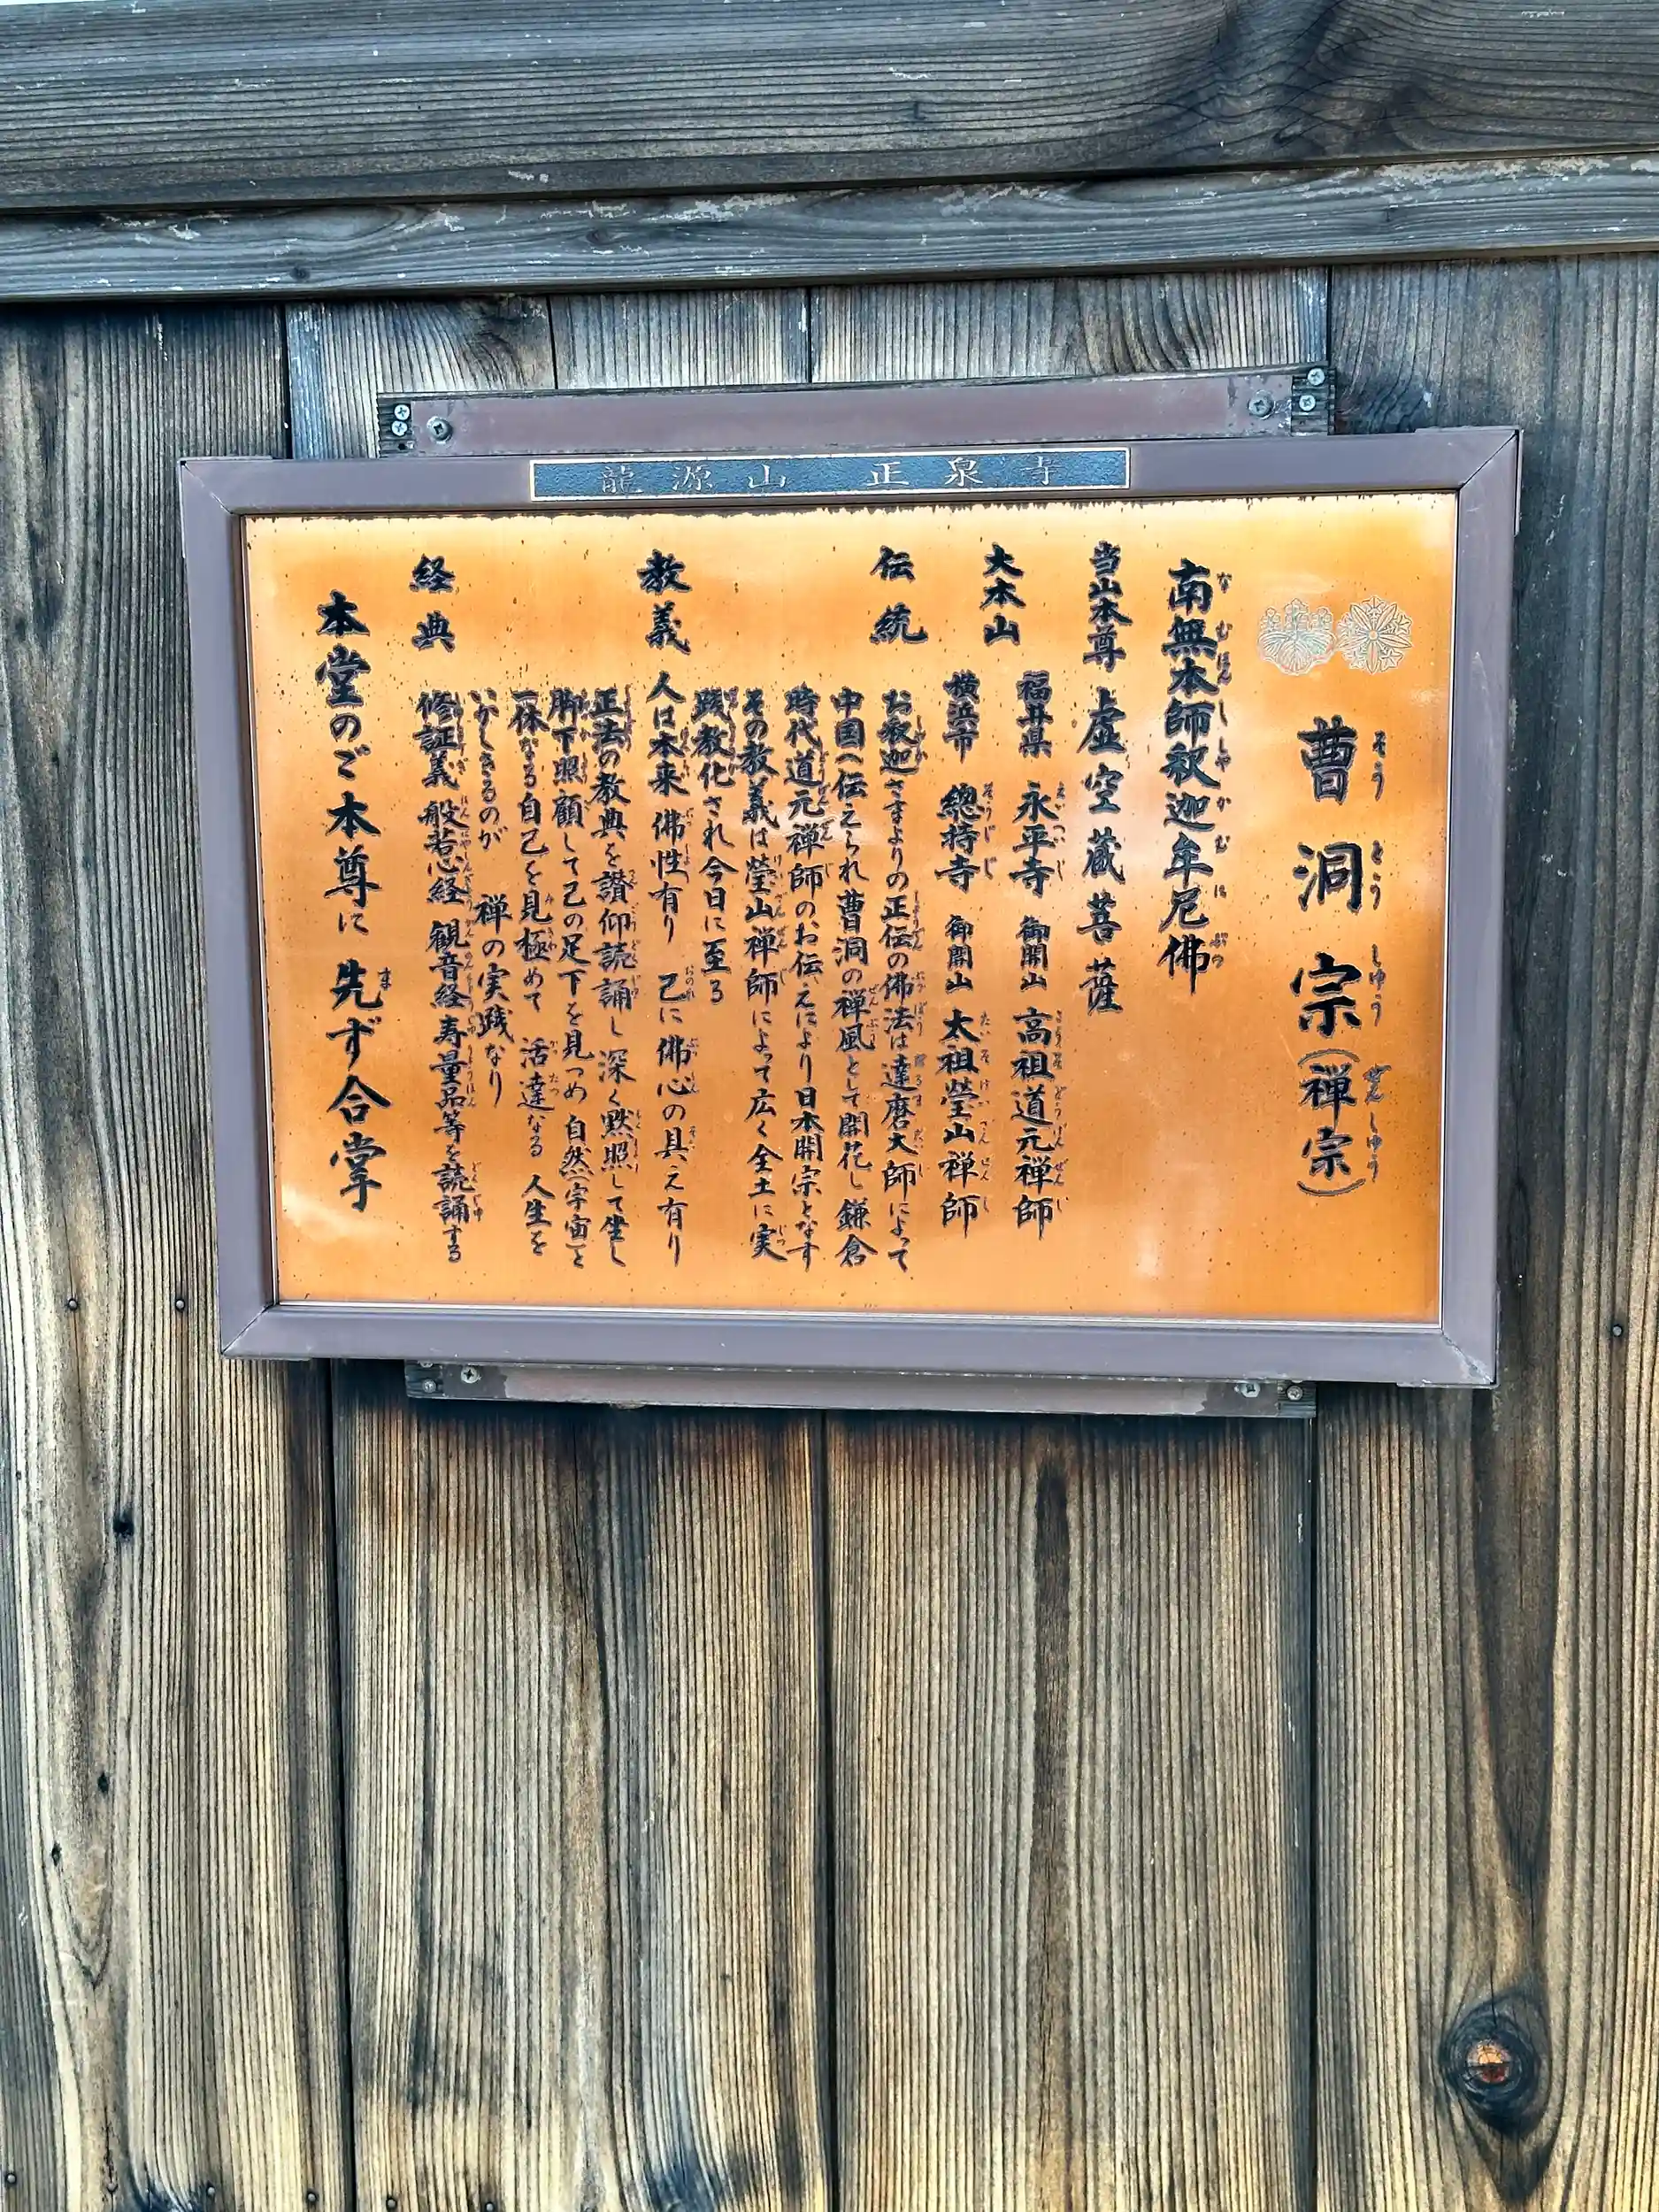 龍源山 正泉寺
曹洞宗(禅宗)
南無本師釈迦牟尼佛
当山本尊 虚空蔵菩薩
大本山 福井県 永平寺 御開山 高祖道元禅師
横浜市 總持寺 御開山 太祖瑩山禅師
伝統 お釈迦さまよりの正伝の佛法は達磨大師によって
中国へ伝えられ曹洞の禅風として開花し鎌倉
時代道元禅師のお伝えにより日本開宗となす
その教義は瑩山禅師によって広く全土に実
践教化され今日に至る
教義 人は本来 佛性有り 己に佛心の具え有り
正法の教典を讃仰読誦し深く黙照して坐し
脚下照顧して己の足下を見つめ 自然(宇宙)と
一体なる自己を見極めて 活達なる 人生を
いかしきるのが 禅の実践なり
経典 修証義 般若心経 観音経 寿量品等を読誦する
本堂のご本尊に 先ず合掌